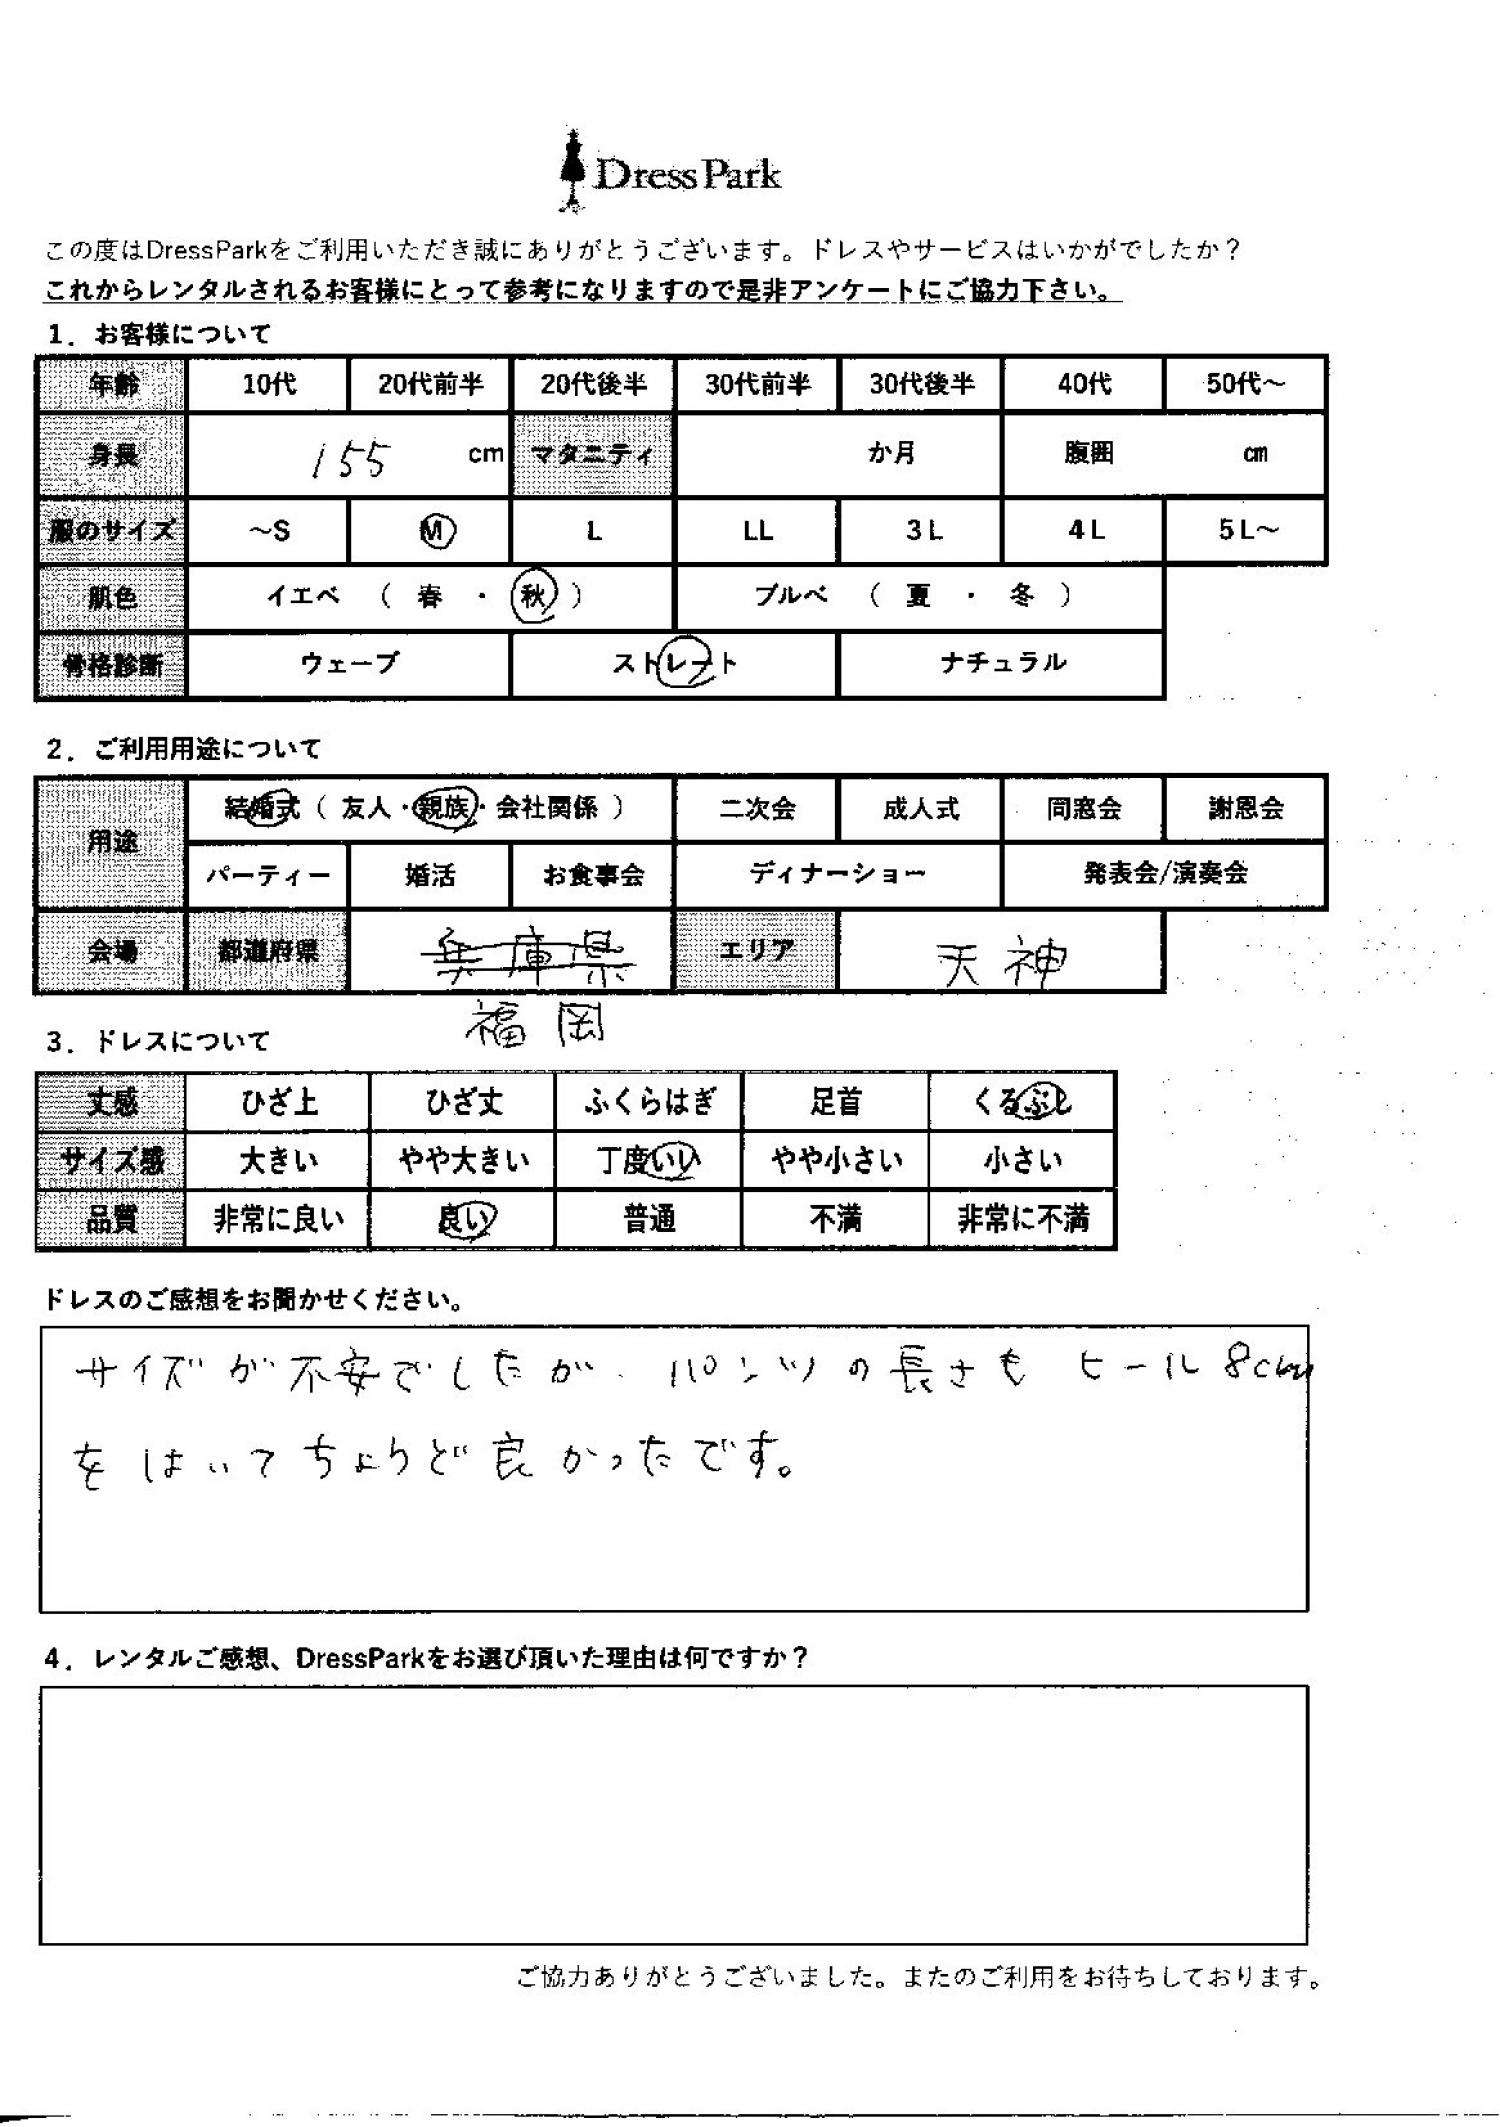 DressPark
この度はDressParkをご利用いただき誠にありがとうございます。ドレスやサービスはいかがでしたか？
これからレンタルされるお客様にとって参考になりますので是非アンケートにご協力下さい。
1．お客様について
年齢 10代 20代前半 20代後半 30代前半 30代後半 40代 50代～
身長 155 cm マタニティ か月 腹囲 ㎝
服のサイズ ～S M L LL 3L 4L 5L～
肌色 イエベ （ 春 ・ 秋 ） ブルベ （ 夏 ・ 冬 ）
骨格診断 ウェーブ ストレート ナチュラル
2．ご利用用途について
用途 結婚式（ 友人・親族・会社関係 ） 二次会 成人式 同窓会 謝恩会
パーティー 婚活 お食事会 ディナーショー 発表会/演奏会
会場 都道府県 兵庫県 エリア 天神
福岡
3．ドレスについて
丈感 ひざ上 ひざ丈 ふくらはぎ 足首 くるぶし
サイズ感 大きい やや大きい 丁度いい やや小さい 小さい
品質 非常に良い 良い 普通 不満 非常に不満
ドレスのご感想をお聞かせください。
サイズが不安でしたが、パンツの長さも ヒール8cm
をはいてちょうど良かったです。
4．レンタルご感想、DressParkをお選び頂いた理由は何ですか？
ご協力ありがとうございました。またのご利用をお待ちしております。